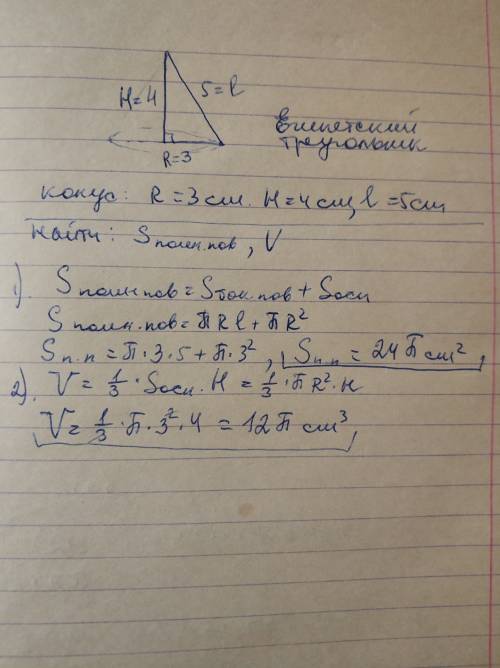 H=4
5=l
R=3
Египетский
треугольник
конус: R=3см. H=4см, l=5см
Найти: Sполн.пов, V
1). Sполн.пов=Sбок.пов+Sосн
Sполн.пов=πRl+πR²
Sп.п=π·3·5+π·3², Sп.п=24π см²,
2). V=1/3·Sосн.H=1/3·πR²·H
V=1/3·π·3²·4=12π см³,